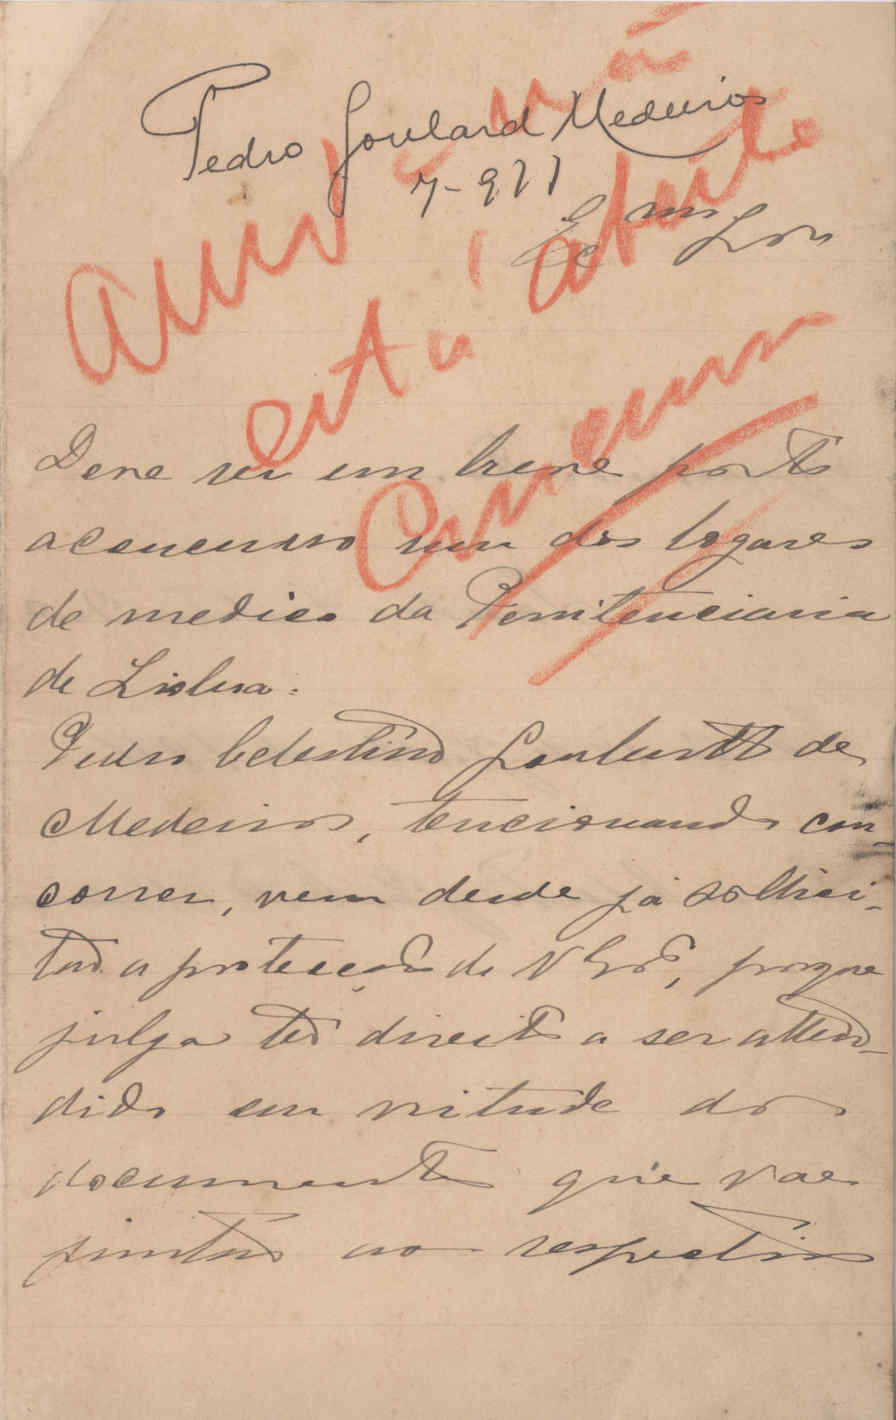 Pedro Goulard Medeiros
7-911
Exmo Snr
ainda não
está aberto
Concurso
Deve ser em breve posto
a concurso um dos logares
de medico da Penitenciaria
de Lisboa.
Pedro Celestino Goulartt de
Medeiros, tencionando con-
correr, vem desde já sollici-
tar a protecção de V Exª, porque
julga ter direito a ser atten-
dido em virtude dos
documentos que vae
juntar ao respectivo